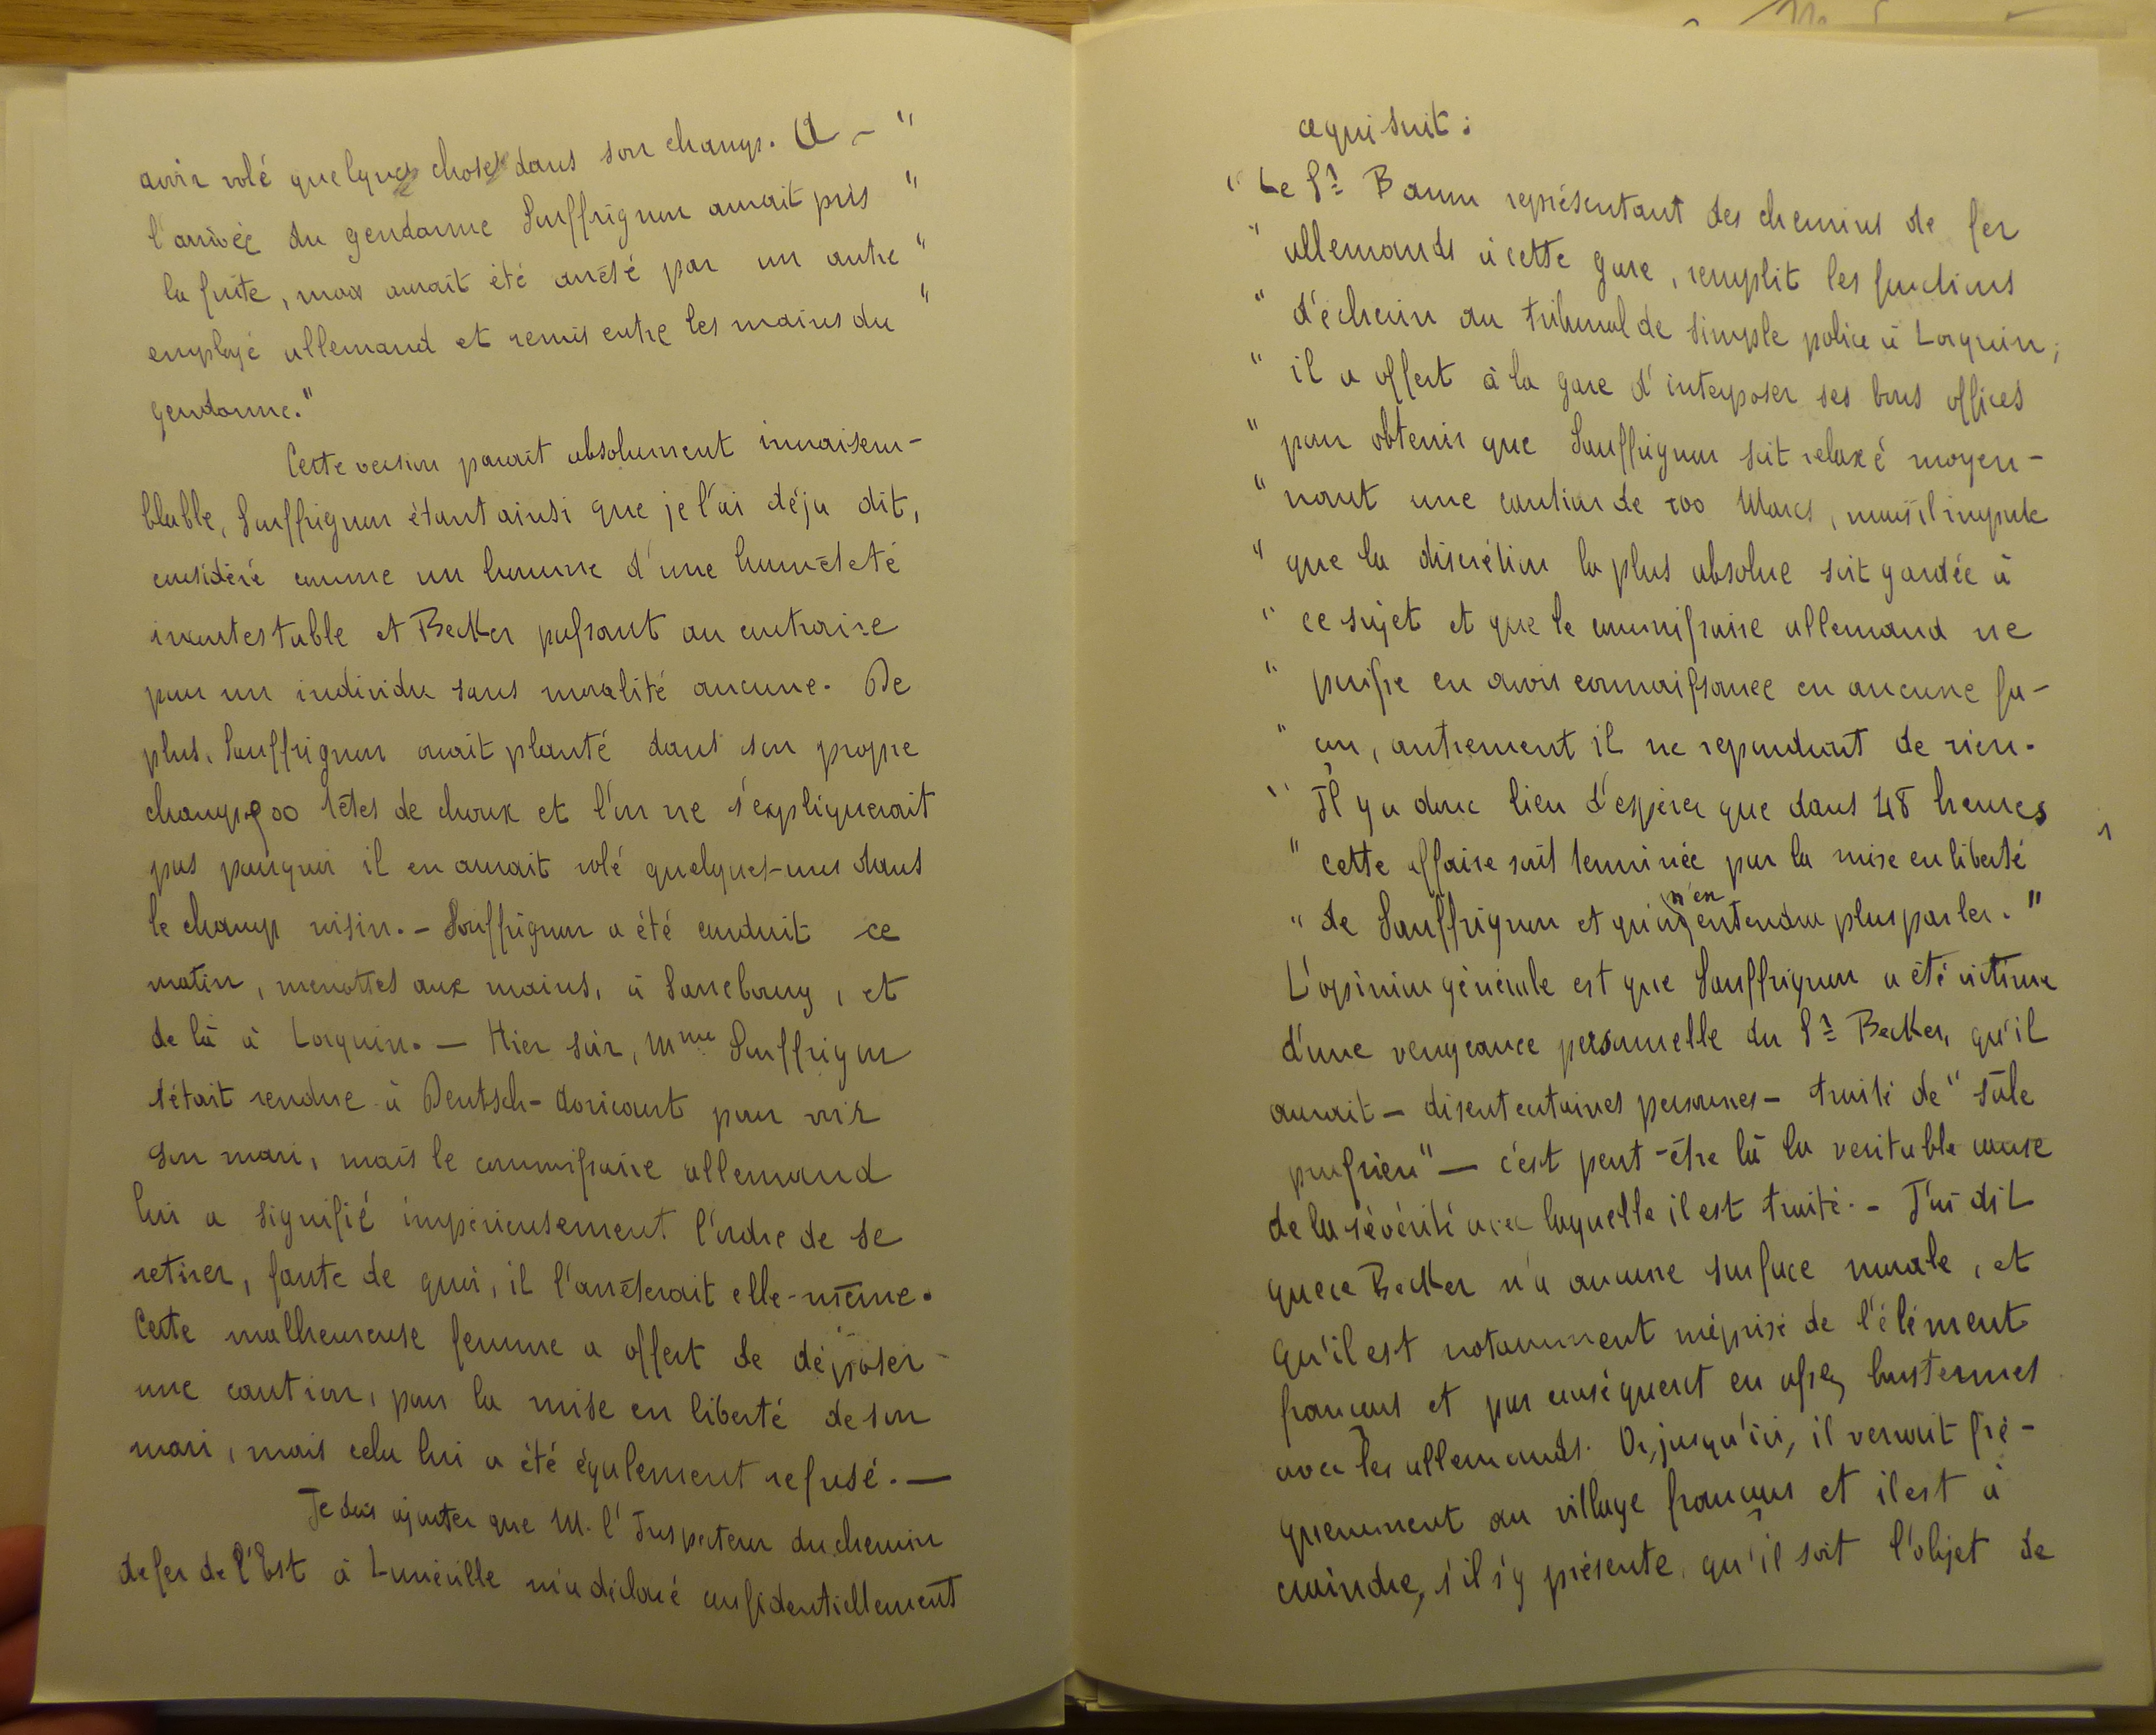 avoir volé quelques choses dans son champ. A – "
l'arrivée du gendarme Souffrignon aurait pris "
la fuite, mais aurait été arrêté par un autre "
employé allemand et remis entre les mains du "
gendarme."
Cette version parait absolument invraisem-
blable, Souffrignon étant ainsi que je l'ai déja dit,
considéré comme un homme d'une honnêteté
incontestable et Becker passant au contraire
pour un individu sans moralité aucune. De
plus, Souffrignon avait planté dans son propre
champ 900 têtes de choux et l'on ne s'expliquerait
pas pourquoi il en aurait volé quelques-uns dans
le champ voisin. – Souffrignon a été conduit ce
matin, menottes aux mains, à Sarrebourg, et
de là à Lorquin. — Hier soir, Mme Souffrignon
s'était rendue à Deutsch-Avricourt pour voir
son mari, mais le commissaire allemand
lui a signifié impérieusement l'ordre de se
retirer, faute de quoi, il l'arrêterait elle-même.
Cette malheureuse femme a offert de déposer
une caution, pour la mise en liberté de son
mari, mais cela lui a été également refusé. —
Je dois ajouter que M. l'Inspecteur du chemin
de fer de l'Est à Lunéville m'a déclaré confidentiellement
ce qui suit :
" Le Sr Baum représentant des chemins de fer
" allemands à cette gare, remplit les fonctions
" d'échevin au tribunal de simple police à Lorquin;
" il a offert à la gare d'interposer ses bons offices
" pour obtenir que Souffrignon soit relaxé moyen-
" nant une caution de 100 Marcs, mais il importe
" que la discrétion la plus absolue soit gardée à
" ce sujet et que le commissaire allemand ne
" puisse en avoir connaissance en aucune fa-
" çon, autrement il ne repondrait de rien.
" Il y a donc lieu d'espérer que dans 48 heures
" cette affaire soit terminée par la mise en liberté
" de Souffrignon et qu'on n'en entendra plus parler. "
L'opinion générale est que Souffrignon a été victime
d'une vengeance personnelle du Sr Becker, qu'il
aurait – disent certaines personnes – traité de " sale
prussien" — c'est peut-être là la veritable cause
de la sévérité avec laquelle il est traité. – J'ai dit
que ce Becker n'a aucune surface morale, et
qu'il est notamment méprisé de l'élément
français et par conséquent en assez bons termes
avec les allemands. Or, jusqu'ici, il venait fré-
quemment au village français et il est à
craindre, s'il s'y présente, qu'il soit l'objet de